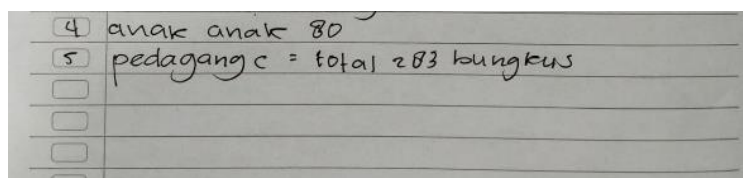 4 anak anak 80
5 pedagang c = total 283 bungkus